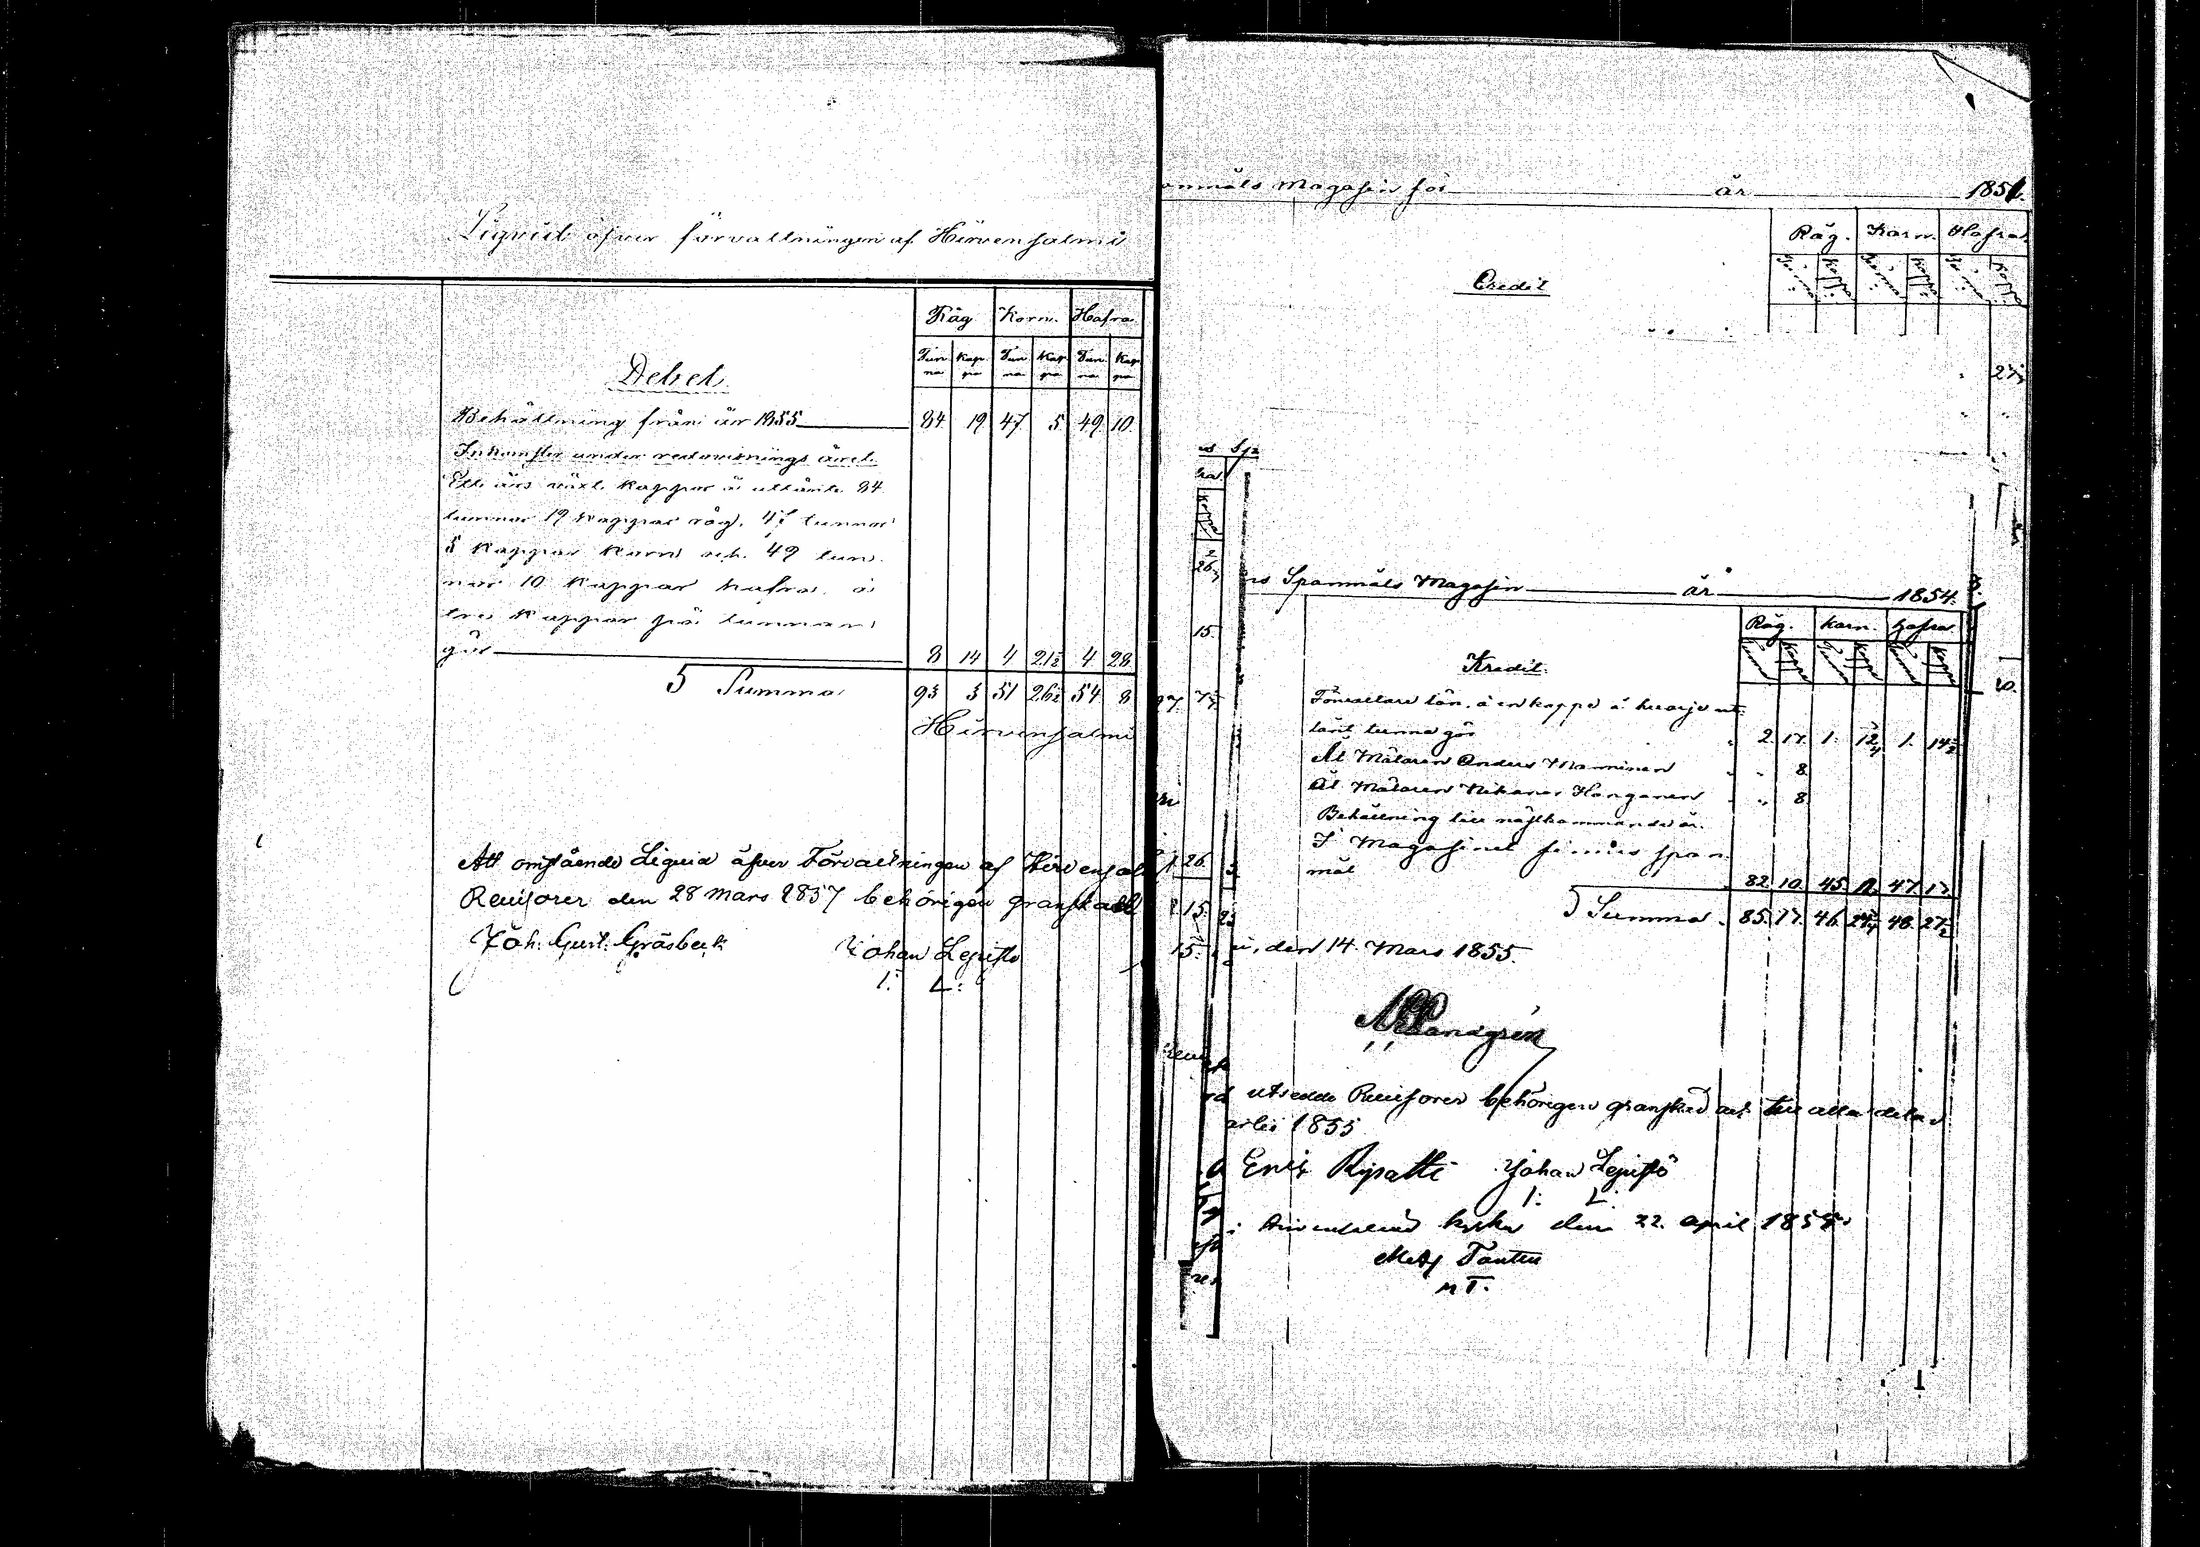 Liqvid öfver förvaltningen af Hirvensalmi
Råg Korn. Hafra.
Tunna Kappa Tunna Kappa Tunna Kappa
Debet.
Behållning från år 1855 84 19 47 5 49 10
Inkomster under redovisnings året.
Ett års växt kappar å utlånte 84
tunnor 19 kappar råg, 47 tunnor
5 kappar korn och 49 tun-
nor 10 kappar hafra à
tre kappar på tunnan
gör 8 14 4 21½ 4 28
Summa 93 3 51 26½ 54 8
Hirvensalmi
Att omstående Liqvid öfver Förvaltningen af Hirvensal
Revisorer den 28 Mars 1857 behörigen granskad
Joh. Gust. Gråsbeck Johan Lepistö
I: L:
Spanmåls Magasin för år 1851.
Råg. Korn. Hafra
Credit
ns Spanmåls Magasin år 1854.
Råg. Korn. Hafra
Kredit.
Förvaltare lön, à en kappe å hvarje ut-
lånt tunna gör 2 17 1 12 1 14½
Åt Mätaren Anders Manninen 8
Åt Mätaren Nikanor Honganen 8
Behållning till nästkommande år.
I Magasinet finnes span-
mål 82 10 45 12 47 13
Summa 85 17 46 24 48 27½
den 14 Mars 1855.
utsedde Revisorer behörigen granskad och till alla delar
1855
Eric Ripatti Johan Lepistö
I: L:
i Hirvensalmi kyrka den 22 april 185
Mats Tantu
M T.